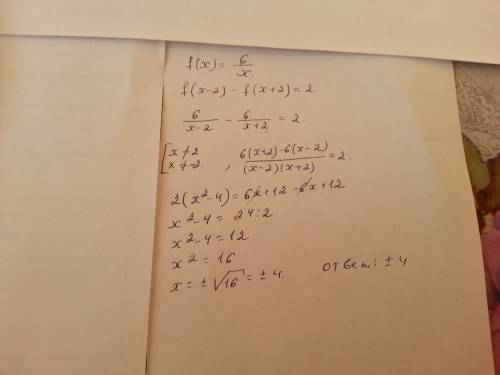 f(x) = 6/x.
f(x-2) - f(x+2) = 2.
6/(x-2) - 6/(x+2) = 2.
[x ≠ 2 x ≠ -2. , (6(x+2)-6(x-2))/((x-2)(x+2)) = 2.
2(x²-4) = 6x+12 -6x+12
x²-4 = 24:2
x²-4 = 12
x² = 16
x = ±√16 = ±4. ответ: ±4